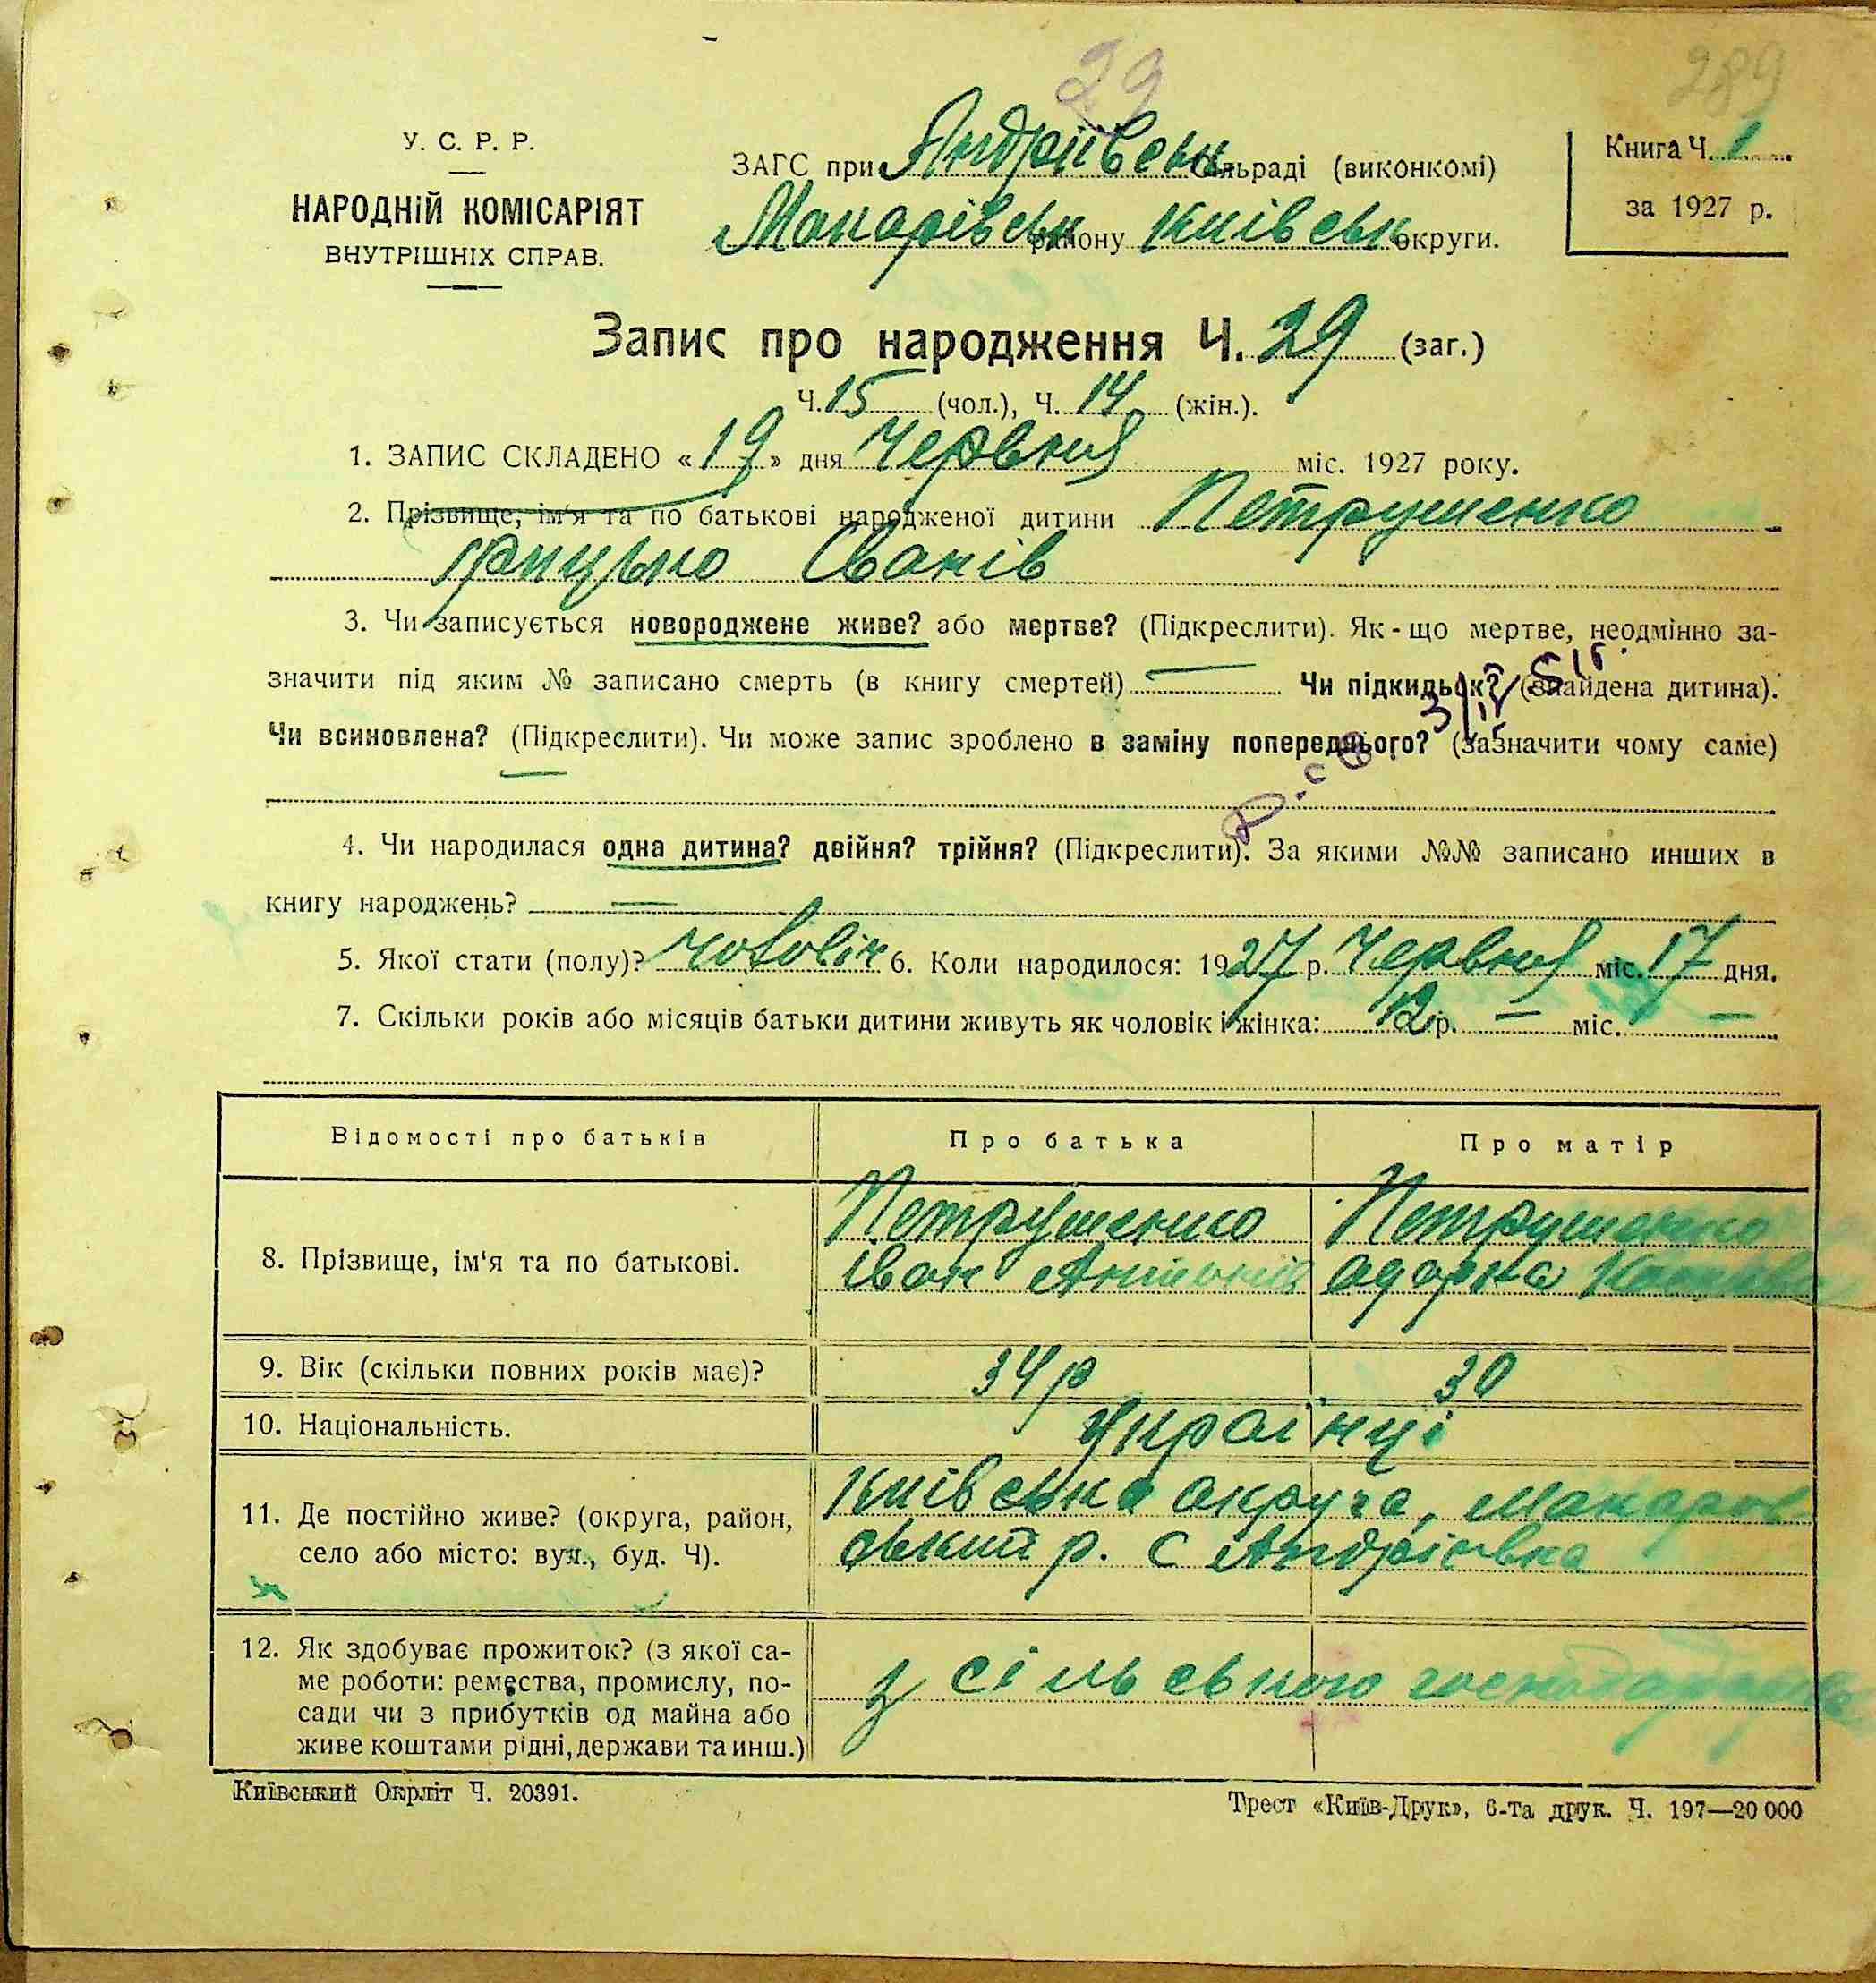 29
289
У. С. Р. Р.
НАРОДНІЙ КОМІСАРІЯТ
ВНУТРІШНІХ СПРАВ.
ЗАГС при Андріївськ Сільраді (виконкомі)
Макарівськ району Київськ округи.
Книга Ч. 1
за 1927 р.
Запис про народження Ч. 29 (заг.)
Ч. 15 (чол.), Ч. 14 (жін.).
1. ЗАПИС СКЛАДЕНО «19» дня Червня міс. 1927 року.
2. Прізвище, ім'я та по батькові народженої дитини Петрушенко
Грицько Іванів
3. Чи записується новороджене живе? або мертве? (Підкреслити). Як-що мертве, неодмінно за-
значити під яким № записано смерть (в книгу смертей) — Чи підкидьок? (знайдена дитина).
Чи всиновлена? (Підкреслити). Чи може запис зроблено в заміну попереднього? (зазначити чому саме)
4. Чи народилася одна дитина? двійня? трійня? (Підкреслити). За якими №№ записано инших в
книгу народжень? —
5. Якої стати (полу)? чоловік 6. Коли народилося: 1927 р. Червня міс. 17 дня.
7. Скільки років або місяців батьки дитини живуть як чоловік і жінка: 12 р. — міс. —
Відомості про батьків Про батька Про матір
8. Прізвище, ім'я та по батькові.
Петрушенко Петрушенко
Іван Антонів Одарка
9. Вік (скільки повних років має)? 34 р 30
10. Національність. Українці
11. Де постійно живе? (округа, район,
село або місто: вул., буд. Ч).
Київська округа, Макаров-
ський р. с Андріївка
12. Як здобуває прожиток? (з якої са-
ме роботи: ремества, промислу, по-
сади чи з прибутків од майна або
живе коштами рідні, держави та инш.)
з сільського
Київський Окрліт Ч. 20391.
Трест «Київ-Друк», 6-та друк. Ч. 197—20 000